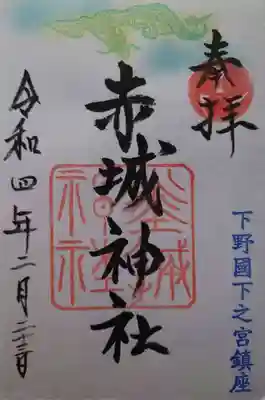 奉拝
赤城神社
下野國下之宮鎮座
令和四年二月二十二日